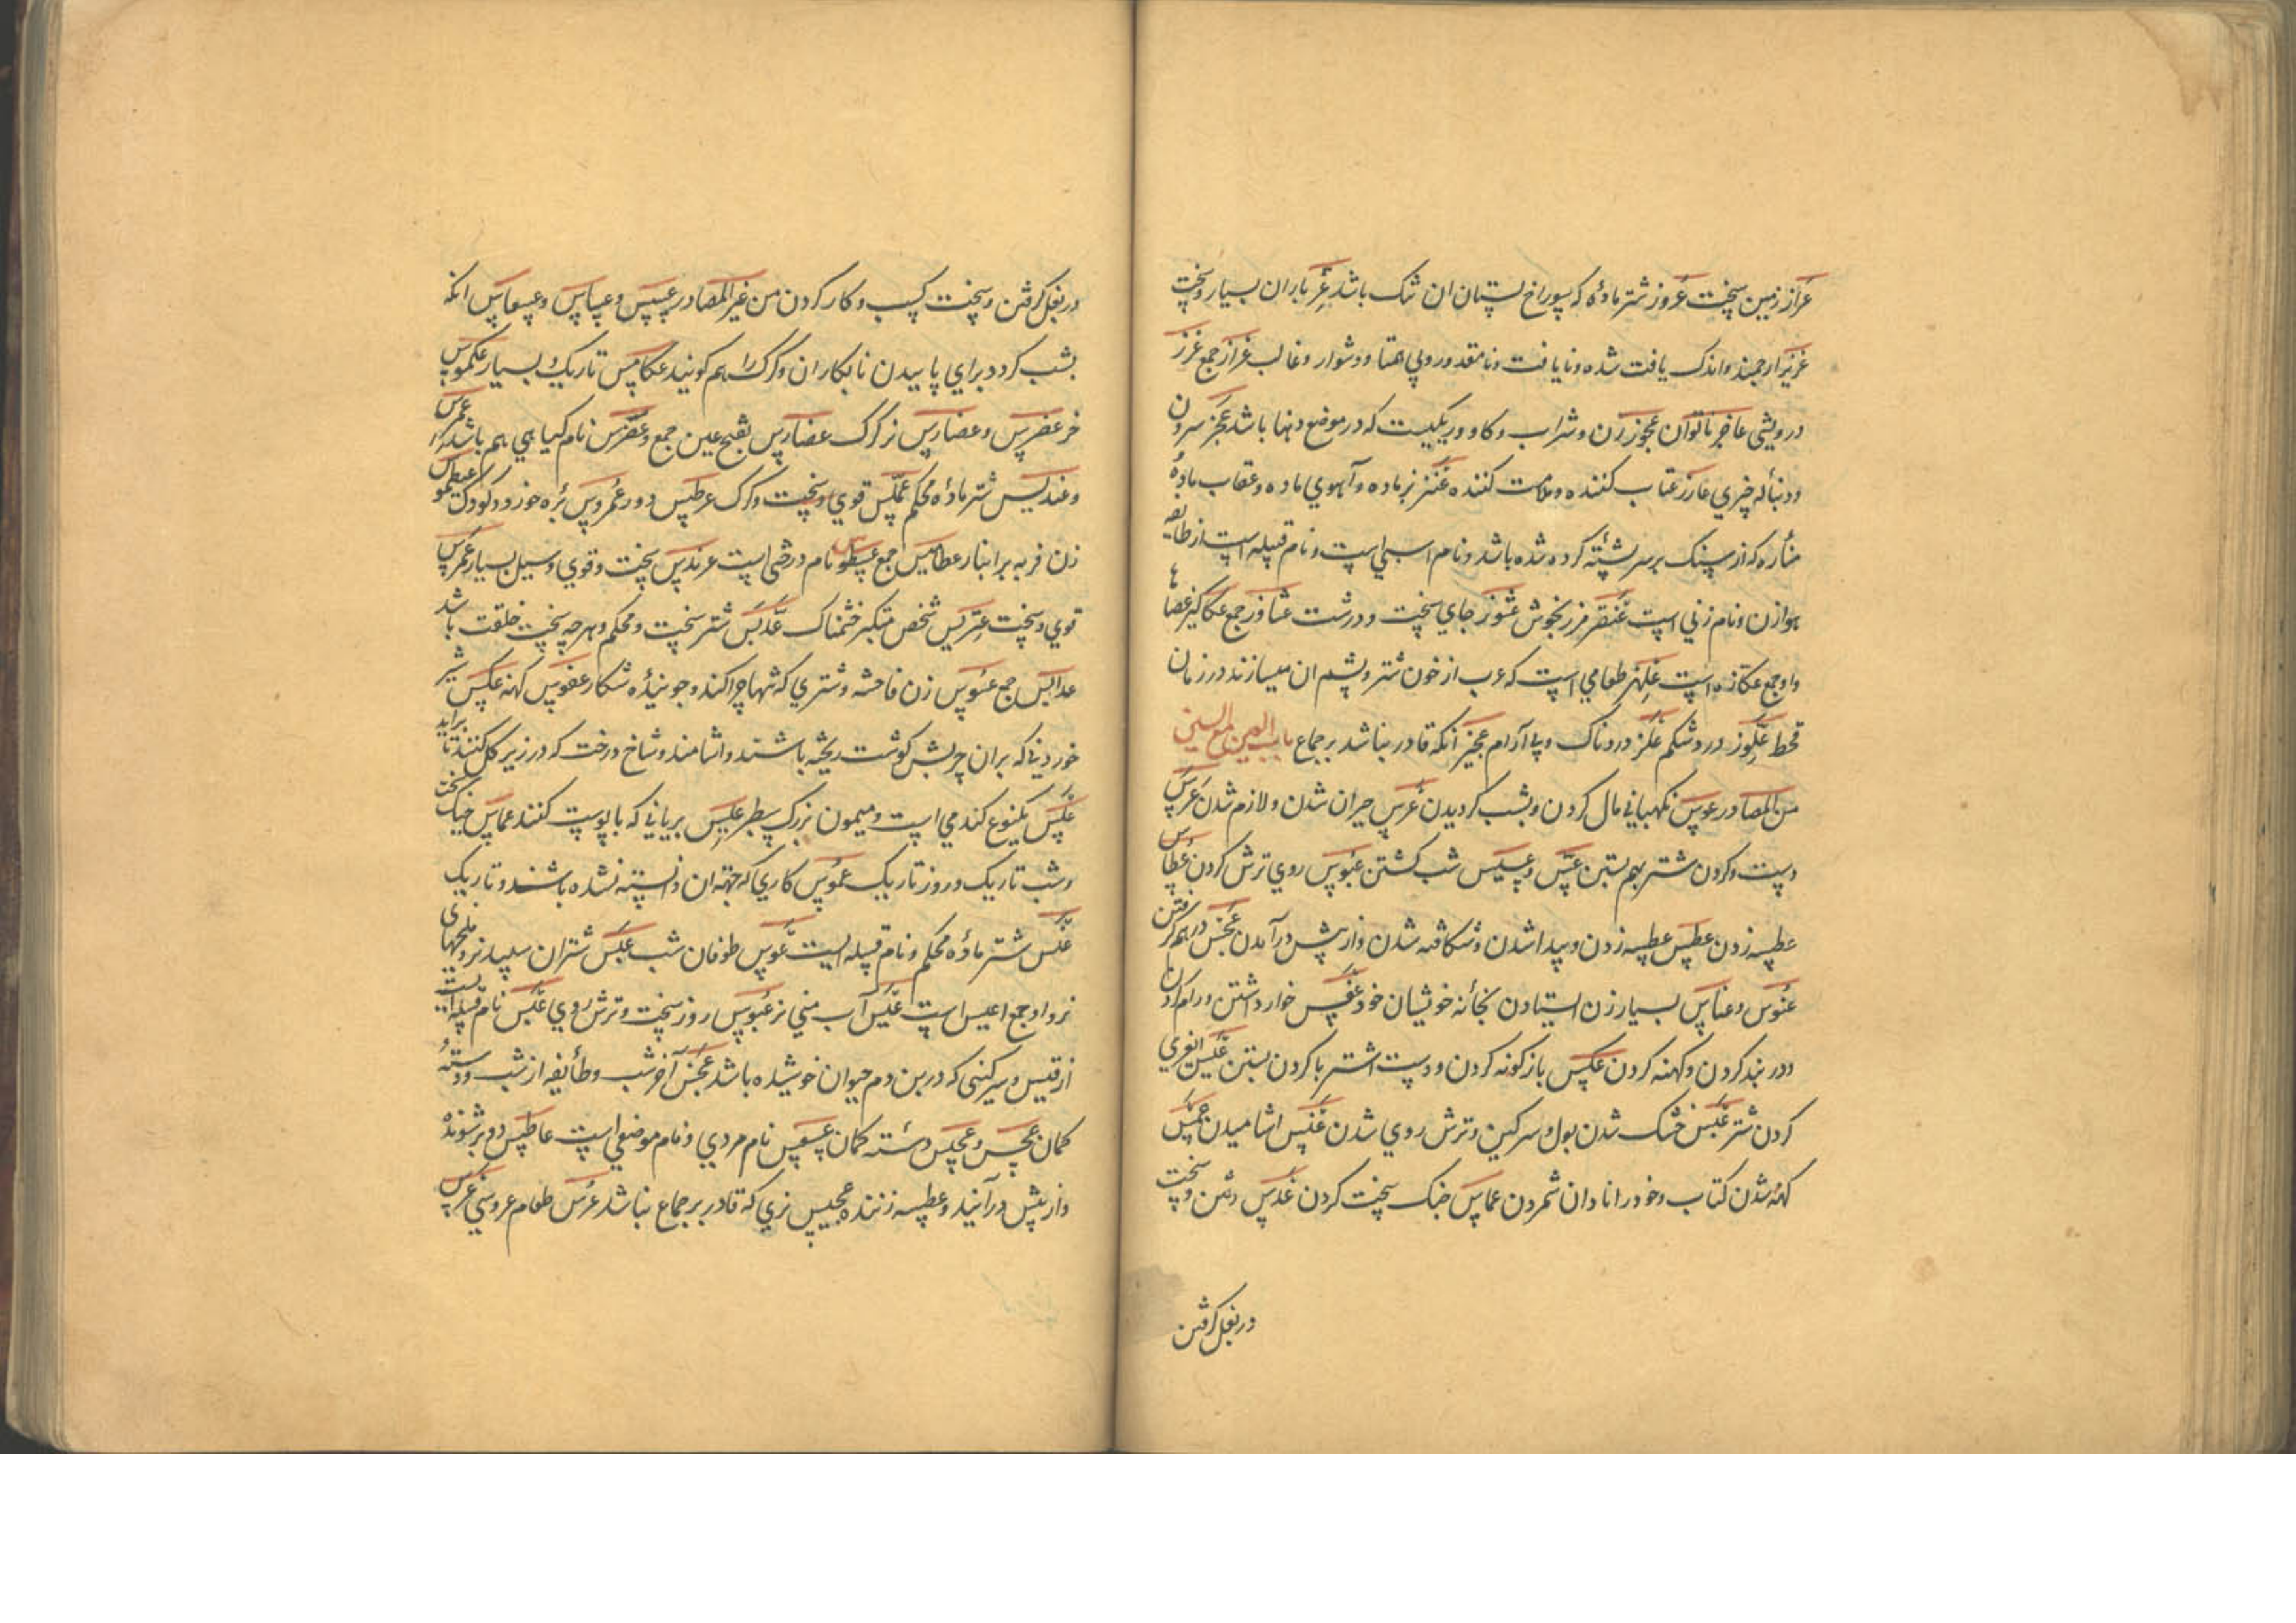 عزاز زمین سخت عزوز شتر ماده که سوراخ پستان ان تنک باشد عز باران بسیار و سخت
عزیز ارجمند و اندک یافت شده و نایافت و نامقدور و بی همتا و دشوار و غالب عزاز جمع عزز
درویشی عاجز ناتوان عجوز زن و شراب و کاو و ریکیست که در موضع دهنا باشد عجز سرون
و دنباله چیزی عارز عتاب کننده و ملامت کننده عنز بز ماده و آهوی ماده و عقاب ماده
مناره که از سنک بر سر پشته کرده شده باشد و نام اسبی است و نام قبیله است از طایفه
هوازن و نام زنی است عنقز مرزنجوش عشوز جای سخت و درشت عشاوز جمع عکاکیز عصاها
واو جمع عکازه است علهز طعامی است که عرب از خون شتر و پشم ان میسازند در زمان
قحط علوز درد شکم علز دردناک و بی آرام عجیز انکه قادر نباشد بر جماع باب العین مع السین
من المصادر عوس نکهبانی مال کردن و بشب کردیدن عرس حیران شدن و لازم شدن عرس
دست و کردن شتر بهم بستن عس و عسیس شب کشتن عبوس روی ترش کردن عطاس
عطسه زدن عطس عطسه زدن و پیدا شدن و شکافته شدن و از پیش درآمدن عجس در هم کرفتن
عنوس و عناس بسیار زن ایستادن بخانه خویشان خود عفس خوار داشتن و رام کردن
و در بند کردن و کهنه کردن عکس بازکونه کردن و دست اشتر با کردن بستن
کردن شتر عبس خشک شدن بول و سرکین و ترش روی شدن اشامیدن
کهنه شدن کتاب و خود را نادان شمردن عماس جنک سخت کردن عدس رفتن و سخت
در بغل کرفتن
در بغل کرفتن و سخت کسب و کار کردن من غیر المصادر عسس و عساس و عسعاس انکه
بشب کردد برای پاییدن نابکاران و کرک را هم کویند عکامس تاریک و بسیار عکموس
خر عضرس و عضارس نر کرک عضارس بفتح عین جمع و عضرس نام کیاهی هم باشد عمرس
و عندلیس شتر ماده محکم عملس قوی و سخت و کرک عرطس دور عمروس بره خورد و کودک عیطموس
زن فربه برابنار عطامیس جمع عسطوس نام درختی است عرندس سخت و قوی و سیل بسیار عمرس
قوی و سخت عتریس شخص متکبر خشمناک عدبس شتر سخت و محکم و هر چه سخت خلقت باشد
عدابس جمع عسوس زن فاحشه و شتری که تنها چرا کند و جوینده شکار عفوس کهنه عکیس شیر
خوردنی که بران چربش کوشت ریخته باشند و اشامند و شاخ درخت که در زیر کل کنند تا براید
علس یکنوع کندمی است و میمون بزرک سطبر علیس بریانی که با پوست کنند عماس جنک سخت
و شب تاریک و روز تاریک عموس کاری که جهة ان دانسته نشده باشند و تاریک
عنس شتر ماده محکم و نام قبیله ایست عوس طوفان شب عیس شتران سپید نر و ملخهای
نر و او جمع اعیس است عیس آب منی نر عبوس روز سخت و ترش روی عبس نام قبیله ایست
از قیس و سرکینی که در بن دم حیوان خوشیده باشد عجس آخر شب و طائفه از شب و دسته
کمان عجس و عجس دسته کمان عسعس نام مردی و نام موضعی است عاطس دو بر شونده
و از پیش درآینده و عطسه زننده عجیس نری که قادر بر جماع نباشد عرس طعام عروسی عرس